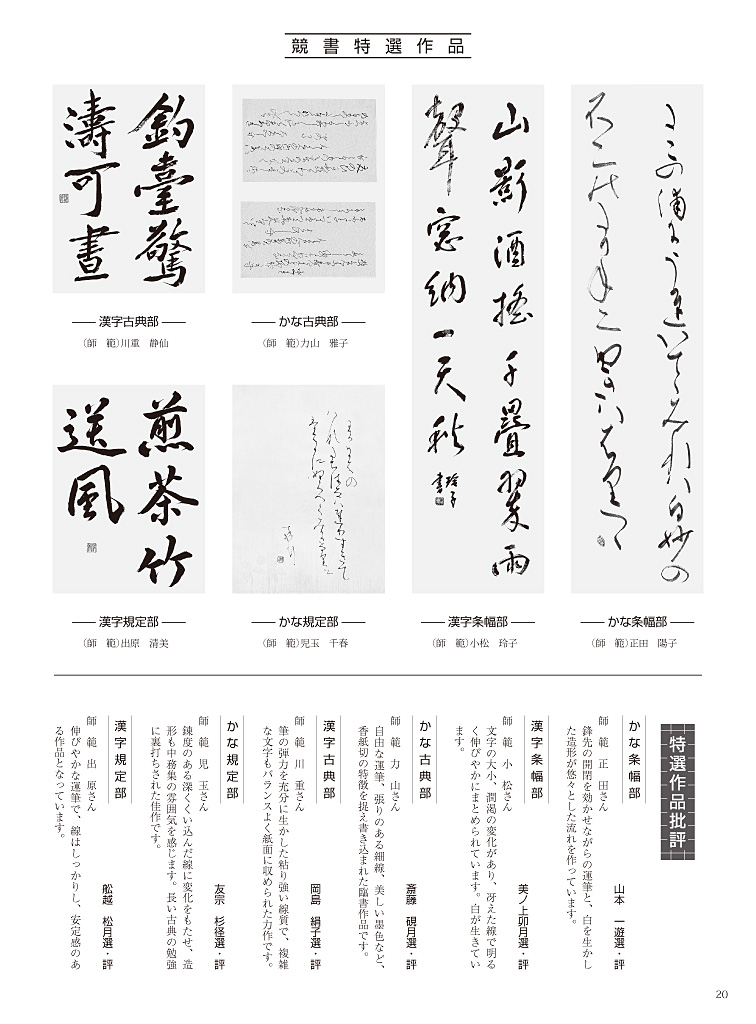 競書特選作品
釣臺驚
濤可畫
漢字古典部
(師　範)川重　静仙
かな古典部
(師　範)力山　雅子
山影酒搖千疊翠雨
聲窓納一天秋
玲子書
漢字条幅部
(師　範)小松　玲子
かな条幅部
(師　範)正田　陽子
煎茶竹
送風
漢字規定部
(師　範)出原　清美
かな規定部
(師　範)児玉　千春
特選作品批評
かな条幅部
山本　一遊選・評
師　範　正　田さん
鋒先の開閉を効かせながらの運筆と、白を生かし
た造形が悠々とした流れを作っています。
漢字条幅部
美ノ上卯月選・評
師　範　小　松さん
文字の大小、潤渇の変化があり、冴えた線で明る
く伸びやかにまとめられています。白が生きてい
ます。
かな古典部
斎藤　硯月選・評
師　範　力　山さん
自由な運筆、張りのある細線、美しい墨色など、
香紙切の特徴を捉え書き込まれた臨書作品です。
漢字古典部
岡島　絹子選・評
師　範　川　重さん
筆の弾力を充分に生かした粘り強い線質で、複雑
な文字もバランスよく紙面に収められた力作です。
かな規定部
友宗　杉径選・評
師　範　児　玉さん
錬度のある深くくい込んだ線に変化をもたせ、造
形も中務集の雰囲気を感じます。長い古典の勉強
に裏打ちされた佳作です。
漢字規定部
舩越　松月選・評
師　範　出　原さん
伸びやかな運筆で、線はしっかりし、安定感のあ
る作品となっています。
20